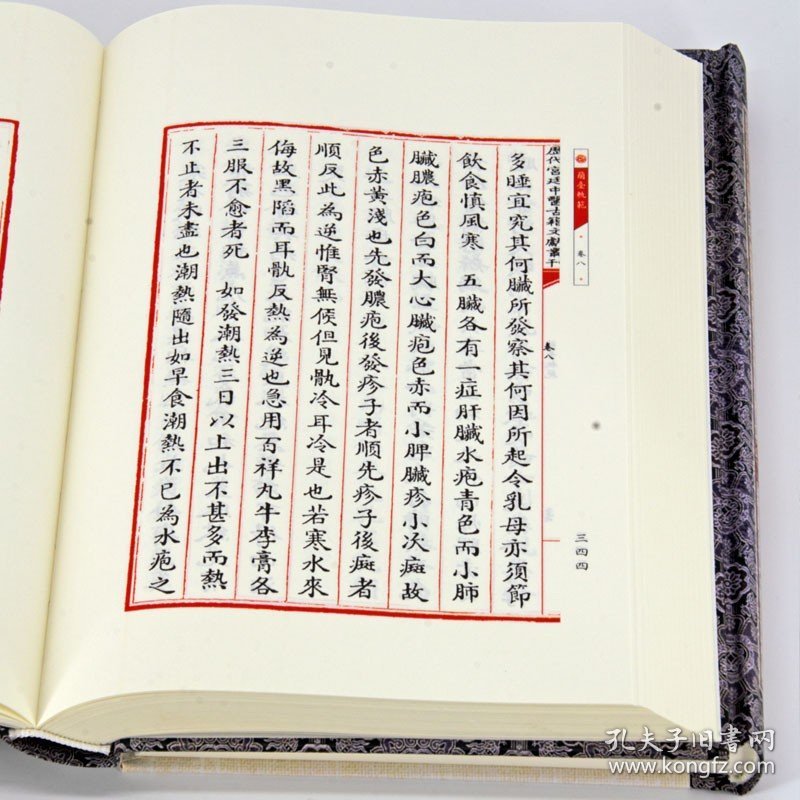 歷代宫廷中醫古籍文獻叢刊
卷八
蘭臺軌範
卷八
三四四
多睡宜究其何臟所發察其何因所起令乳母亦須節
飲食慎風寒 五臟各有一症肝臟水疱青色而小肺
臟膿疱色白而大心臟疱色赤而小脾臟疹小次癍故
色赤黃淺也先發膿疱後發疹子者順先疹子後癍者
順反此為逆惟腎無候但見骩冷耳冷是也若寒水來
侮故黑陷而耳骩反熱為逆也急用百祥丸牛李膏各
三服不愈者死 如發潮熱三日以上出不甚多而熱
不止者未盡也潮熱隨出如早食潮熱不已為水疱之
孔夫子旧書网
www.kongfz.com